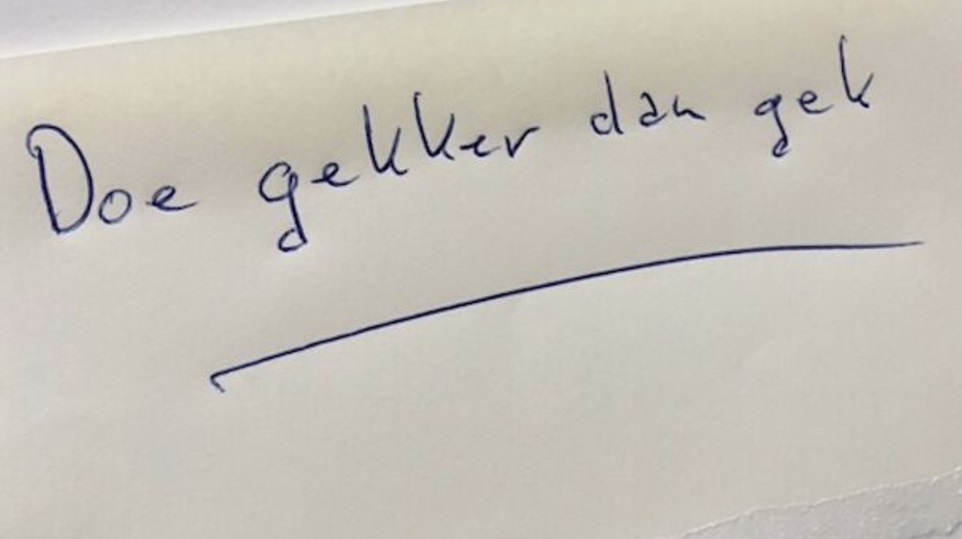 Doe gekker dan gek